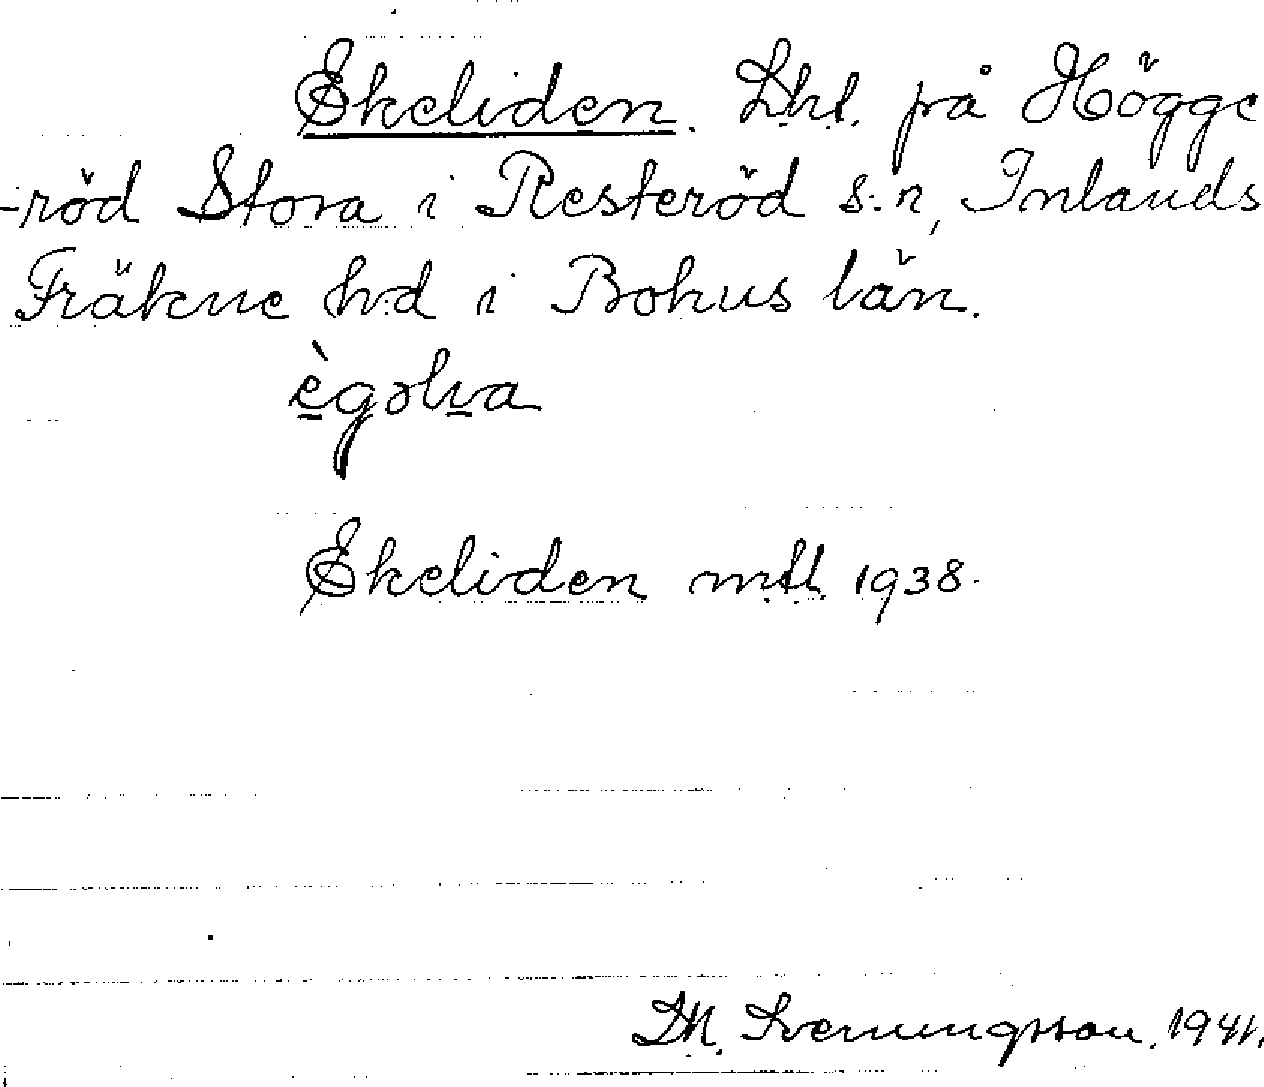 Ekeliden. Lht. på Högge
-röd Stora i Resteröd s:n, Inlands
Fräkne h:d i Bohus län.
ègəlıa
Ekeliden mtl. 1938.
Svenungsson. 1941.